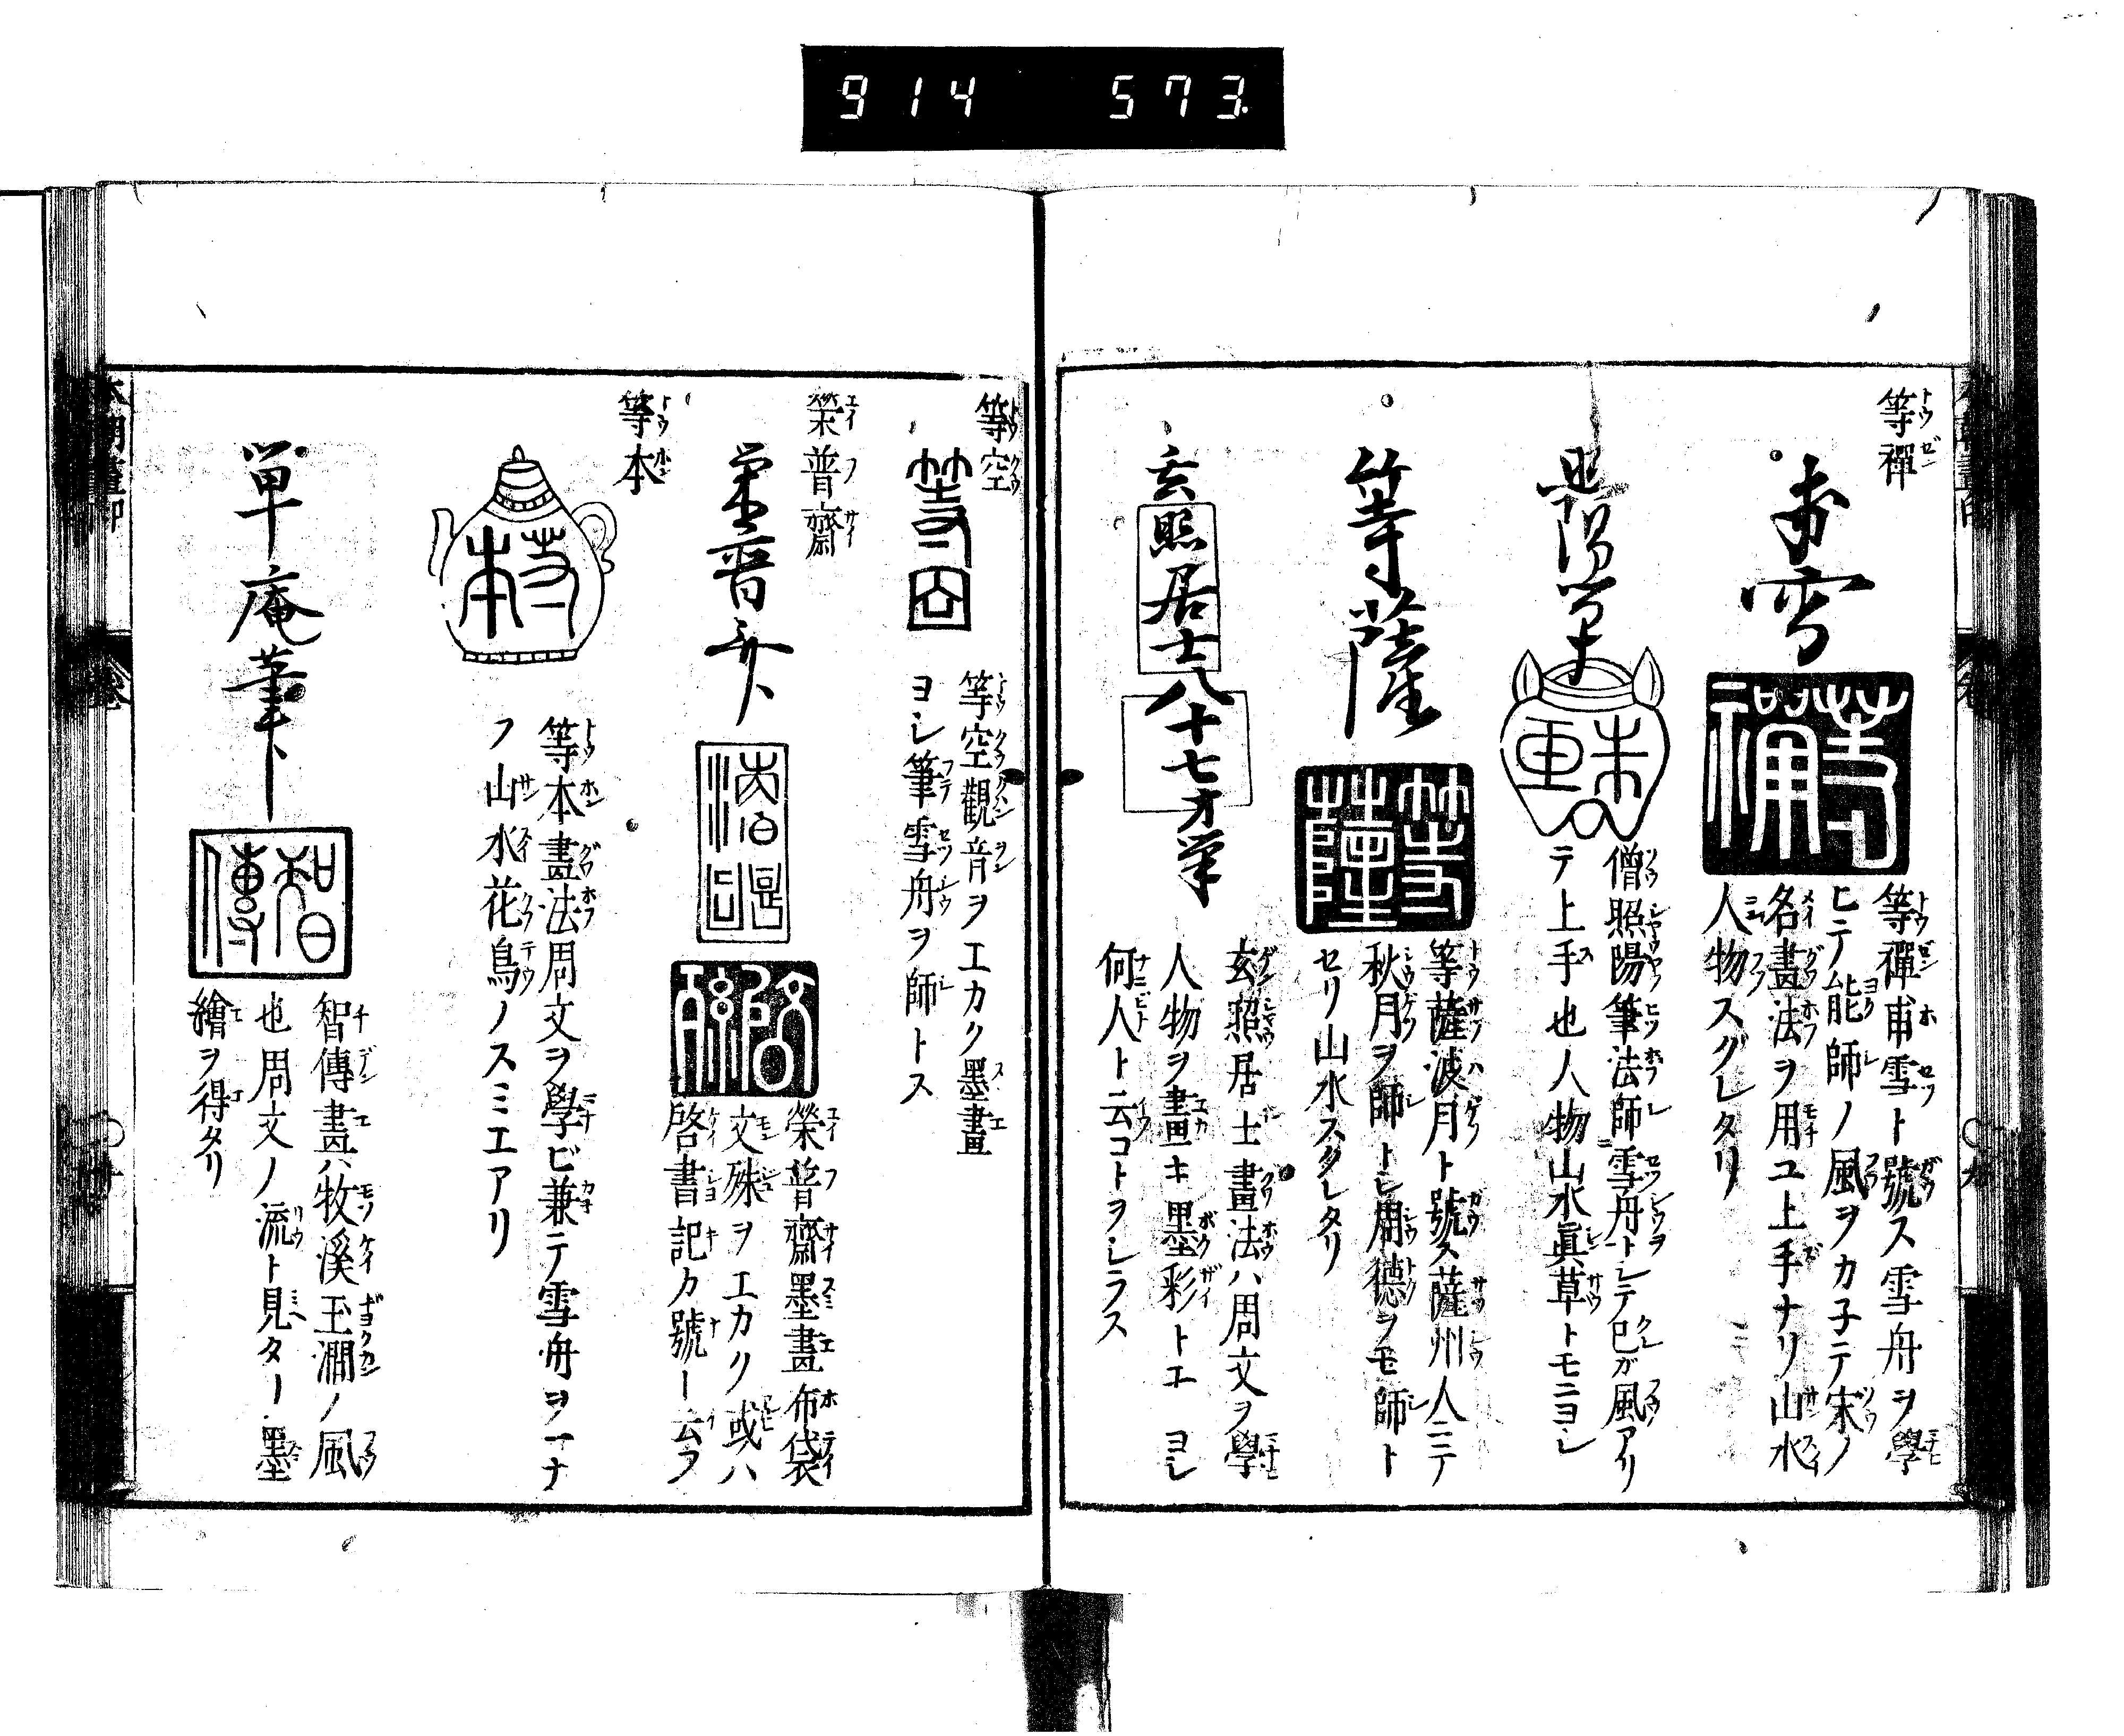 914 573.
等禪
等禪甫雪ト號ス雪舟ヲ學
ヒテ能師ノ風ヲカ子テ宋ノ
名畫法ヲ用ユ上手ナリ山水
人物スグレタリ
僧照陽筆法師雪舟トレテ巳ガ風アリ
テ上手也人物山水眞草トモニヨシ
等薩
等薩
等薩波月ト號ス薩州人ニテ
秋月ヲ師トシ周德ヲモ師ト
セリ山水スグレタリ
玄照居士八十七才筆
玄照居士畫法ハ周文ヲ學
人物ヲ畫キ墨彩トエ ヨシ
何人ト云コトヲシラス
等空
等空觀音ヲエカク墨畫
ヨシ筆雪舟ヲ師トス
榮普齋
榮普齋墨畫布袋
文殊ヲエカク或ハ
啓書記カ號ト云フ
等本
等本
等本畫法周文ヲ學ビ兼テ雪舟ヲ一ナ
フ山水花鳥ノスミエアリ
單庵筆
智傳
智傳畫ハ牧溪玉澗ノ風
也周文ノ流ト見タリ墨
繪ヲ得タリ